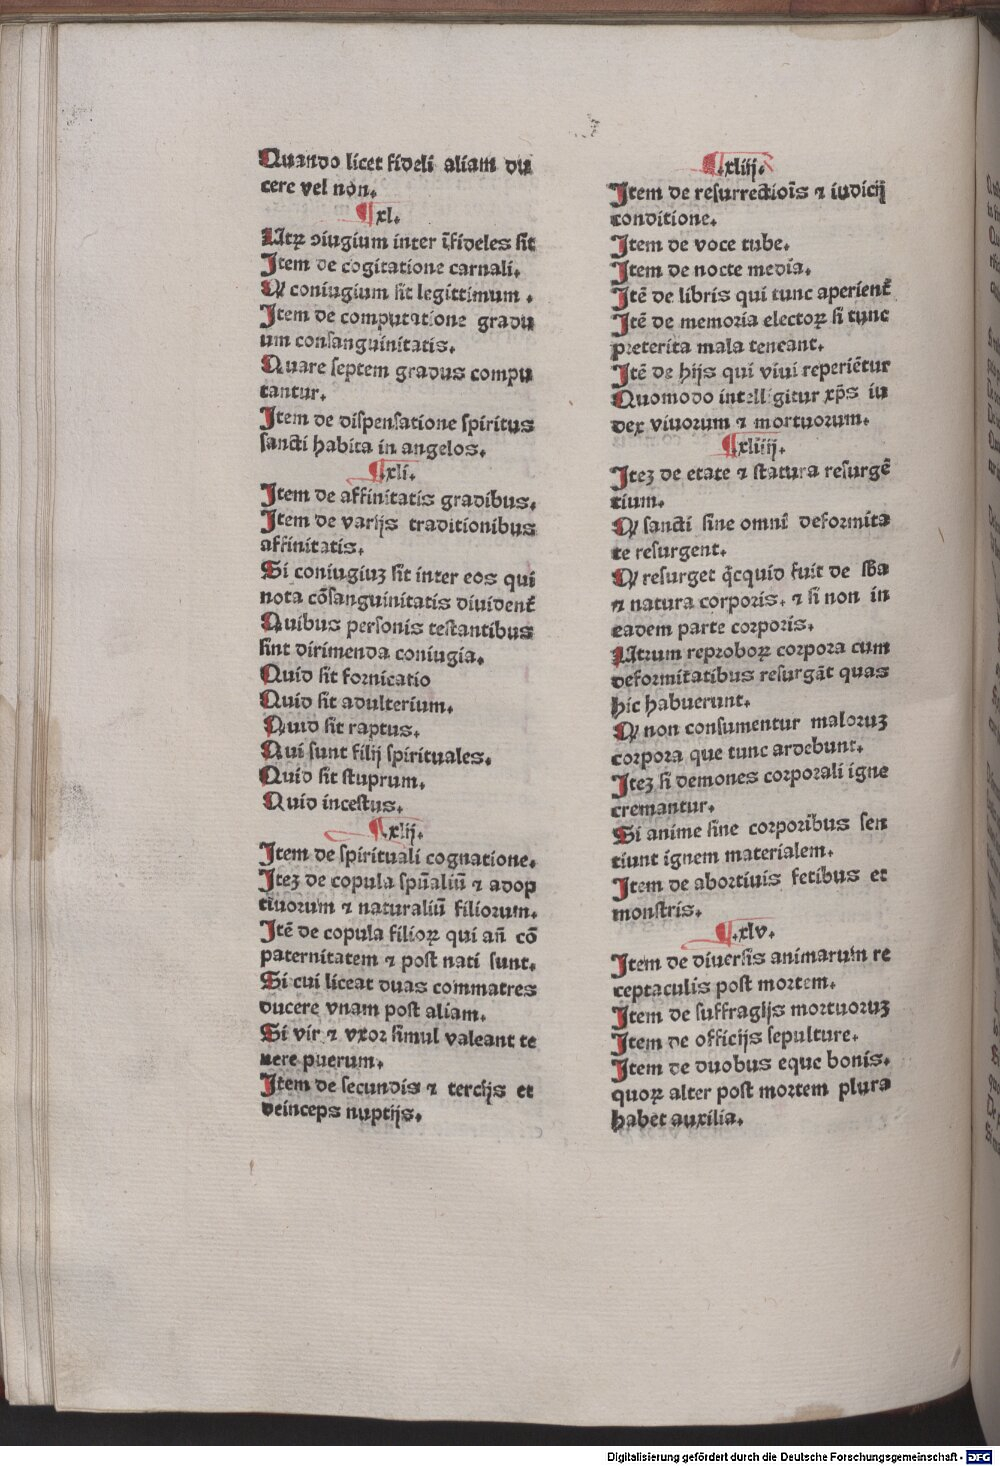 Quando licet fideli aliam du
cere vel non.
¶.xl.
Utꝝ ↄiugium inter īfideles sit
Item de cogitatione carnali.
Ꝙ coniugium sit legittimum .
Item de computatione gradu
um consanguinitatis.
Quare septem gradus compu
tantur.
Item de dispensatione spiritus
sancti habita in angelos.
¶.xli.
Item de affinitatis gradibus.
Item de varijs traditionibus
affinitatis.
Si coniugiuꝫ sit inter eos qui
nota cōsanguinitatis dividenť
Quibus personis testantibus
sint dirimenda coniugia.
Quid sit fornicatio
Quid sit adulterium.
Quid sit raptus.
Qui sunt filij spirituales.
Quid sit stuprum.
Quid incestus.
¶.xlij.
Item de spirituali cognatione.
Iteꝫ de copula spūaliū ⁊ adop
tiuorum ⁊ naturaliū filiorum.
Itē de copula filioꝝ qui an̄ cō
paternitatem ⁊ post nati sunt.
Si cui liceat duas commatres
ducere vnam post aliam.
Si vir ⁊ vxor simul valeant te
nere puerum.
Item de secundis ⁊ tercijs et
deinceps nuptijs.
¶.xliij.
Item de resurrectiois̄ ⁊ iudicij
conditione.
Item de voce tube.
Item de nocte media.
Itē de libris qui tunc aperienť
Itē de memoria electoꝝ si tunc
preterita mala teneant.
Itē de hijs qui viui reperiētur
Quomodo intelligitur xp̄s iu
dex viuorum ⁊ mortuorum.
¶.xliiij.
Iteꝫ de etate ⁊ statura resurgē
tium.
Ꝙ sancti sine omni deformita
te resurgent.
Ꝙ resurget q̇cquid fuit de sb̄a
⁊ natura corporis. ⁊ si non in
eadem parte corporis.
Utrum reproboꝝ corpora cum
deformitatibus resurgāt quas
hic habuerunt.
Ꝙ non consumentur maloruꝫ
corpora que tunc ardebunt.
Iteꝫ si demones corporali igne
cremantur.
Si anime sine corporibus sen
tiunt ignem materialem.
Item de abortiuis fetibus et
monstris.
¶.xlv.
Item de diuersis animarum re
ceptaculis post mortem.
Item de suffragijs mortuoruꝫ
Item de officijs sepulture.
Item de duobus eque bonis.
quoꝝ alter post mortem plura
habet auxilia.
Digitalisierung gefördert durch die Deutsche Forschungsgemeinschaft - DFG